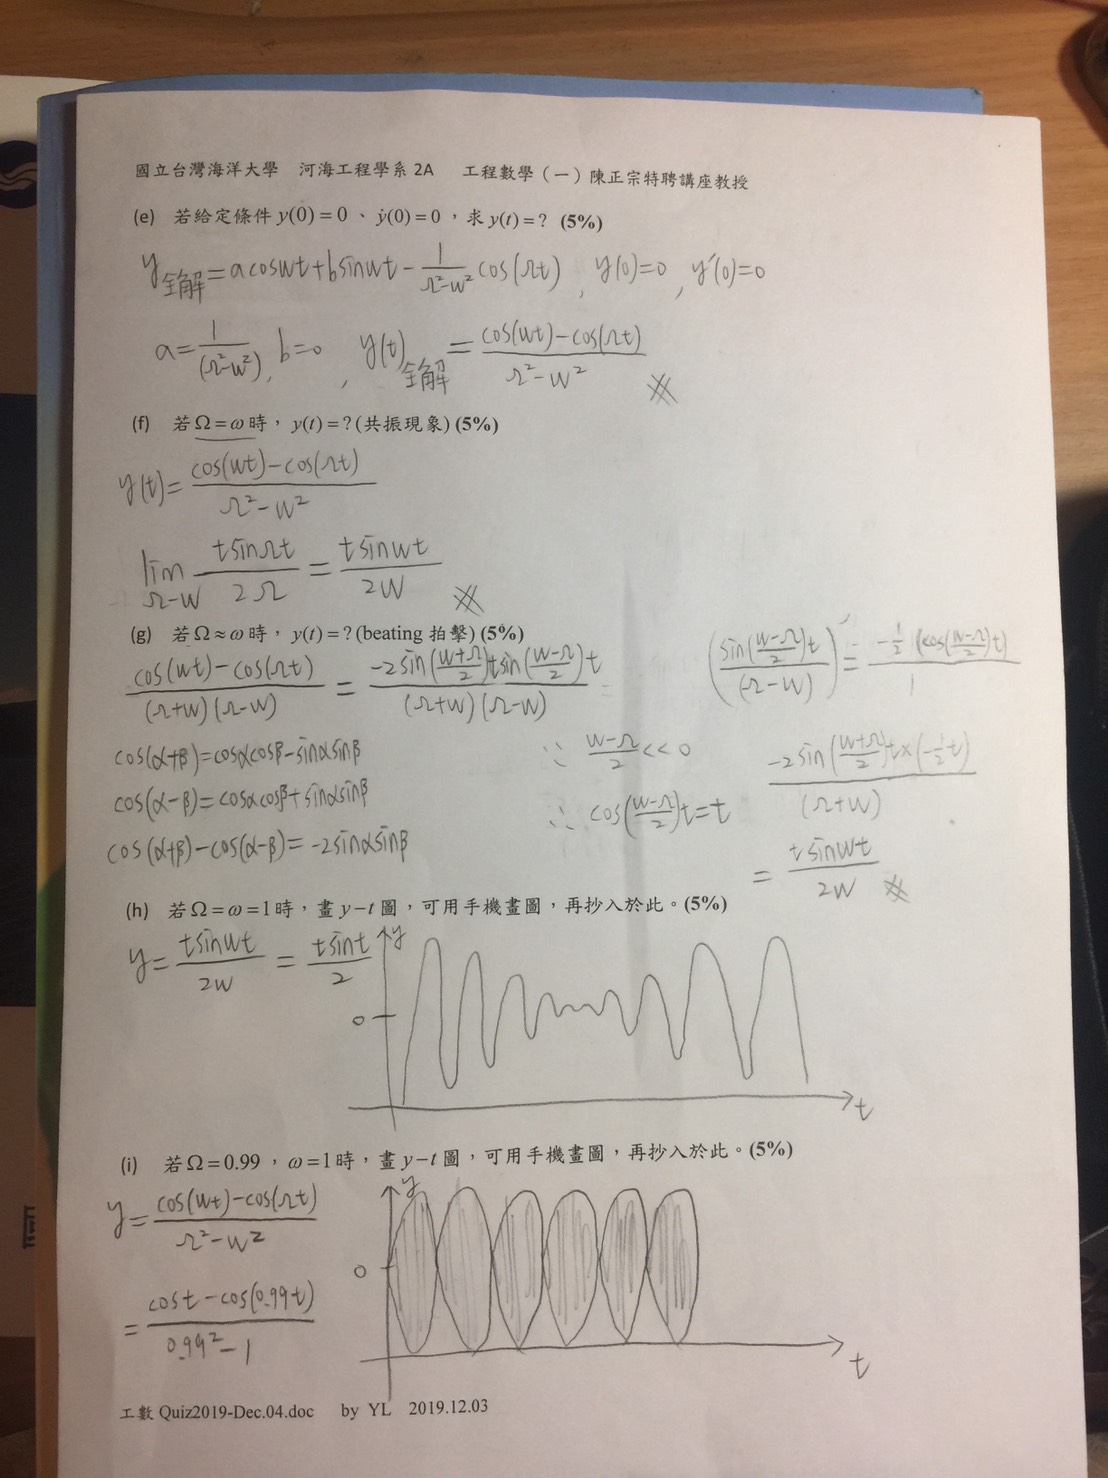 國立台灣海洋大學 河海工程學系 2A 工程數學（一）陳正宗特聘講座教授
(e) 若給定條件 y(0) = 0 、 ẏ(0) = 0 ，求 y(t) = ? (5%)
y全解 = a cos wt + b sin wt − 1/(Ω²−w²) cos(Ωt) , y(0)=0 , y'(0)=0
a = 1/(Ω²−w²) , b=0 , y(t)全解 = (cos(wt)−cos(Ωt))/(Ω²−w²)
(f) 若 Ω = ω 時， y(t) = ? (共振現象) (5%)
y(t) = (cos(wt)−cos(Ωt))/(Ω²−w²)
lim Ω−w  t sinΩt/2Ω = t sin wt/2w
(g) 若 Ω ≈ ω 時， y(t) = ? (beating 拍擊) (5%)
(cos(wt)−cos(Ωt))/((Ω+w)(Ω−w)) = −2 sin((w+Ω)/2)t sin((w−Ω)/2)t/((Ω+w)(Ω−w))
(sin((w−Ω)/2)t/(Ω−w))' = −1/2 (cos((w−Ω)/2)t)/1
cos(α+β)=cosαcosβ−sinαsinβ
cos(α−β)=cosαcosβ+sinαsinβ
cos(α+β)−cos(α−β)=−2sinαsinβ
∵ (w−Ω)/2 << 0
∴ cos((w−Ω)/2)t = t
−2 sin((w+Ω)/2)t×(−1/2 t)/(Ω+w)
= t sin wt/2w
(h) 若 Ω = ω = 1 時，畫 y−t 圖，可用手機畫圖，再抄入於此。(5%)
y = t sin wt/2w = t sin t/2
y
0
t
(i) 若 Ω = 0.99 ， ω = 1 時，畫 y−t 圖，可用手機畫圖，再抄入於此。(5%)
y = (cos(wt)−cos(Ωt))/(Ω²−w²)
= (cos t − cos(0.99t))/(0.99²−1)
y
0
t
工數 Quiz2019-Dec.04.doc by YL 2019.12.03